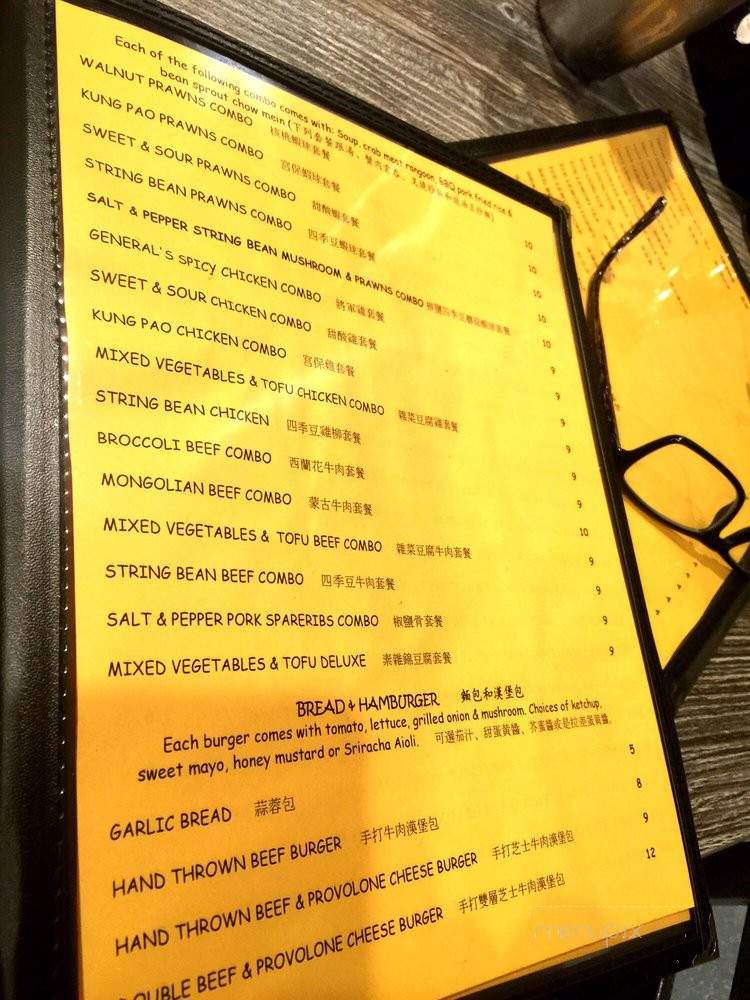 Each of the following combo comes with: Soup, crab meat rangoon, BBQ pork fried rice &
bean sprout chow mein (下列套餐跟湯、蟹肉
WALNUT PRAWNS COMBO 核桃蝦球套餐 10
KUNG PAO PRAWNS COMBO 宮保蝦球套餐 10
SWEET & SOUR PRAWNS COMBO 甜酸蝦套餐 10
STRING BEAN PRAWNS COMBO 四季豆蝦球套餐 10
SALT & PEPPER STRING BEAN MUSHROOM & PRAWNS COMBO 椒鹽四季豆蘑菇蝦球套餐 10
GENERAL'S SPICY CHICKEN COMBO 將軍雞套餐 9
SWEET & SOUR CHICKEN COMBO 甜酸雞套餐 9
KUNG PAO CHICKEN COMBO 宮保雞套餐 9
MIXED VEGETABLES & TOFU CHICKEN COMBO 雜菜豆腐雞套餐 9
STRING BEAN CHICKEN 四季豆雞柳套餐 9
BROCCOLI BEEF COMBO 西蘭花牛肉套餐 9
MONGOLIAN BEEF COMBO 蒙古牛肉套餐 9
MIXED VEGETABLES & TOFU BEEF COMBO 雜菜豆腐牛肉套餐 10
STRING BEAN BEEF COMBO 四季豆牛肉套餐 9
SALT & PEPPER PORK SPARERIBS COMBO 椒鹽骨套餐 9
MIXED VEGETABLES & TOFU DELUXE 素雜錦豆腐套餐 9
BREAD & HAMBURGER 麵包和漢堡包
Each burger comes with tomato, lettuce, grilled onion & mushroom. Choices of ketchup,
sweet mayo, honey mustard or Sriracha Aioli. 可選茄汁、甜蛋黃醬、芥蜜醬或是拉差蛋黃醬。
GARLIC BREAD 蒜蓉包 5
HAND THROWN BEEF BURGER 手打牛肉漢堡包 8
HAND THROWN BEEF & PROVOLONE CHEESE BURGER 手打芝士牛肉漢堡包 9
DOUBLE BEEF & PROVOLONE CHEESE BURGER 手打雙層芝士牛肉漢堡包 12
menupix